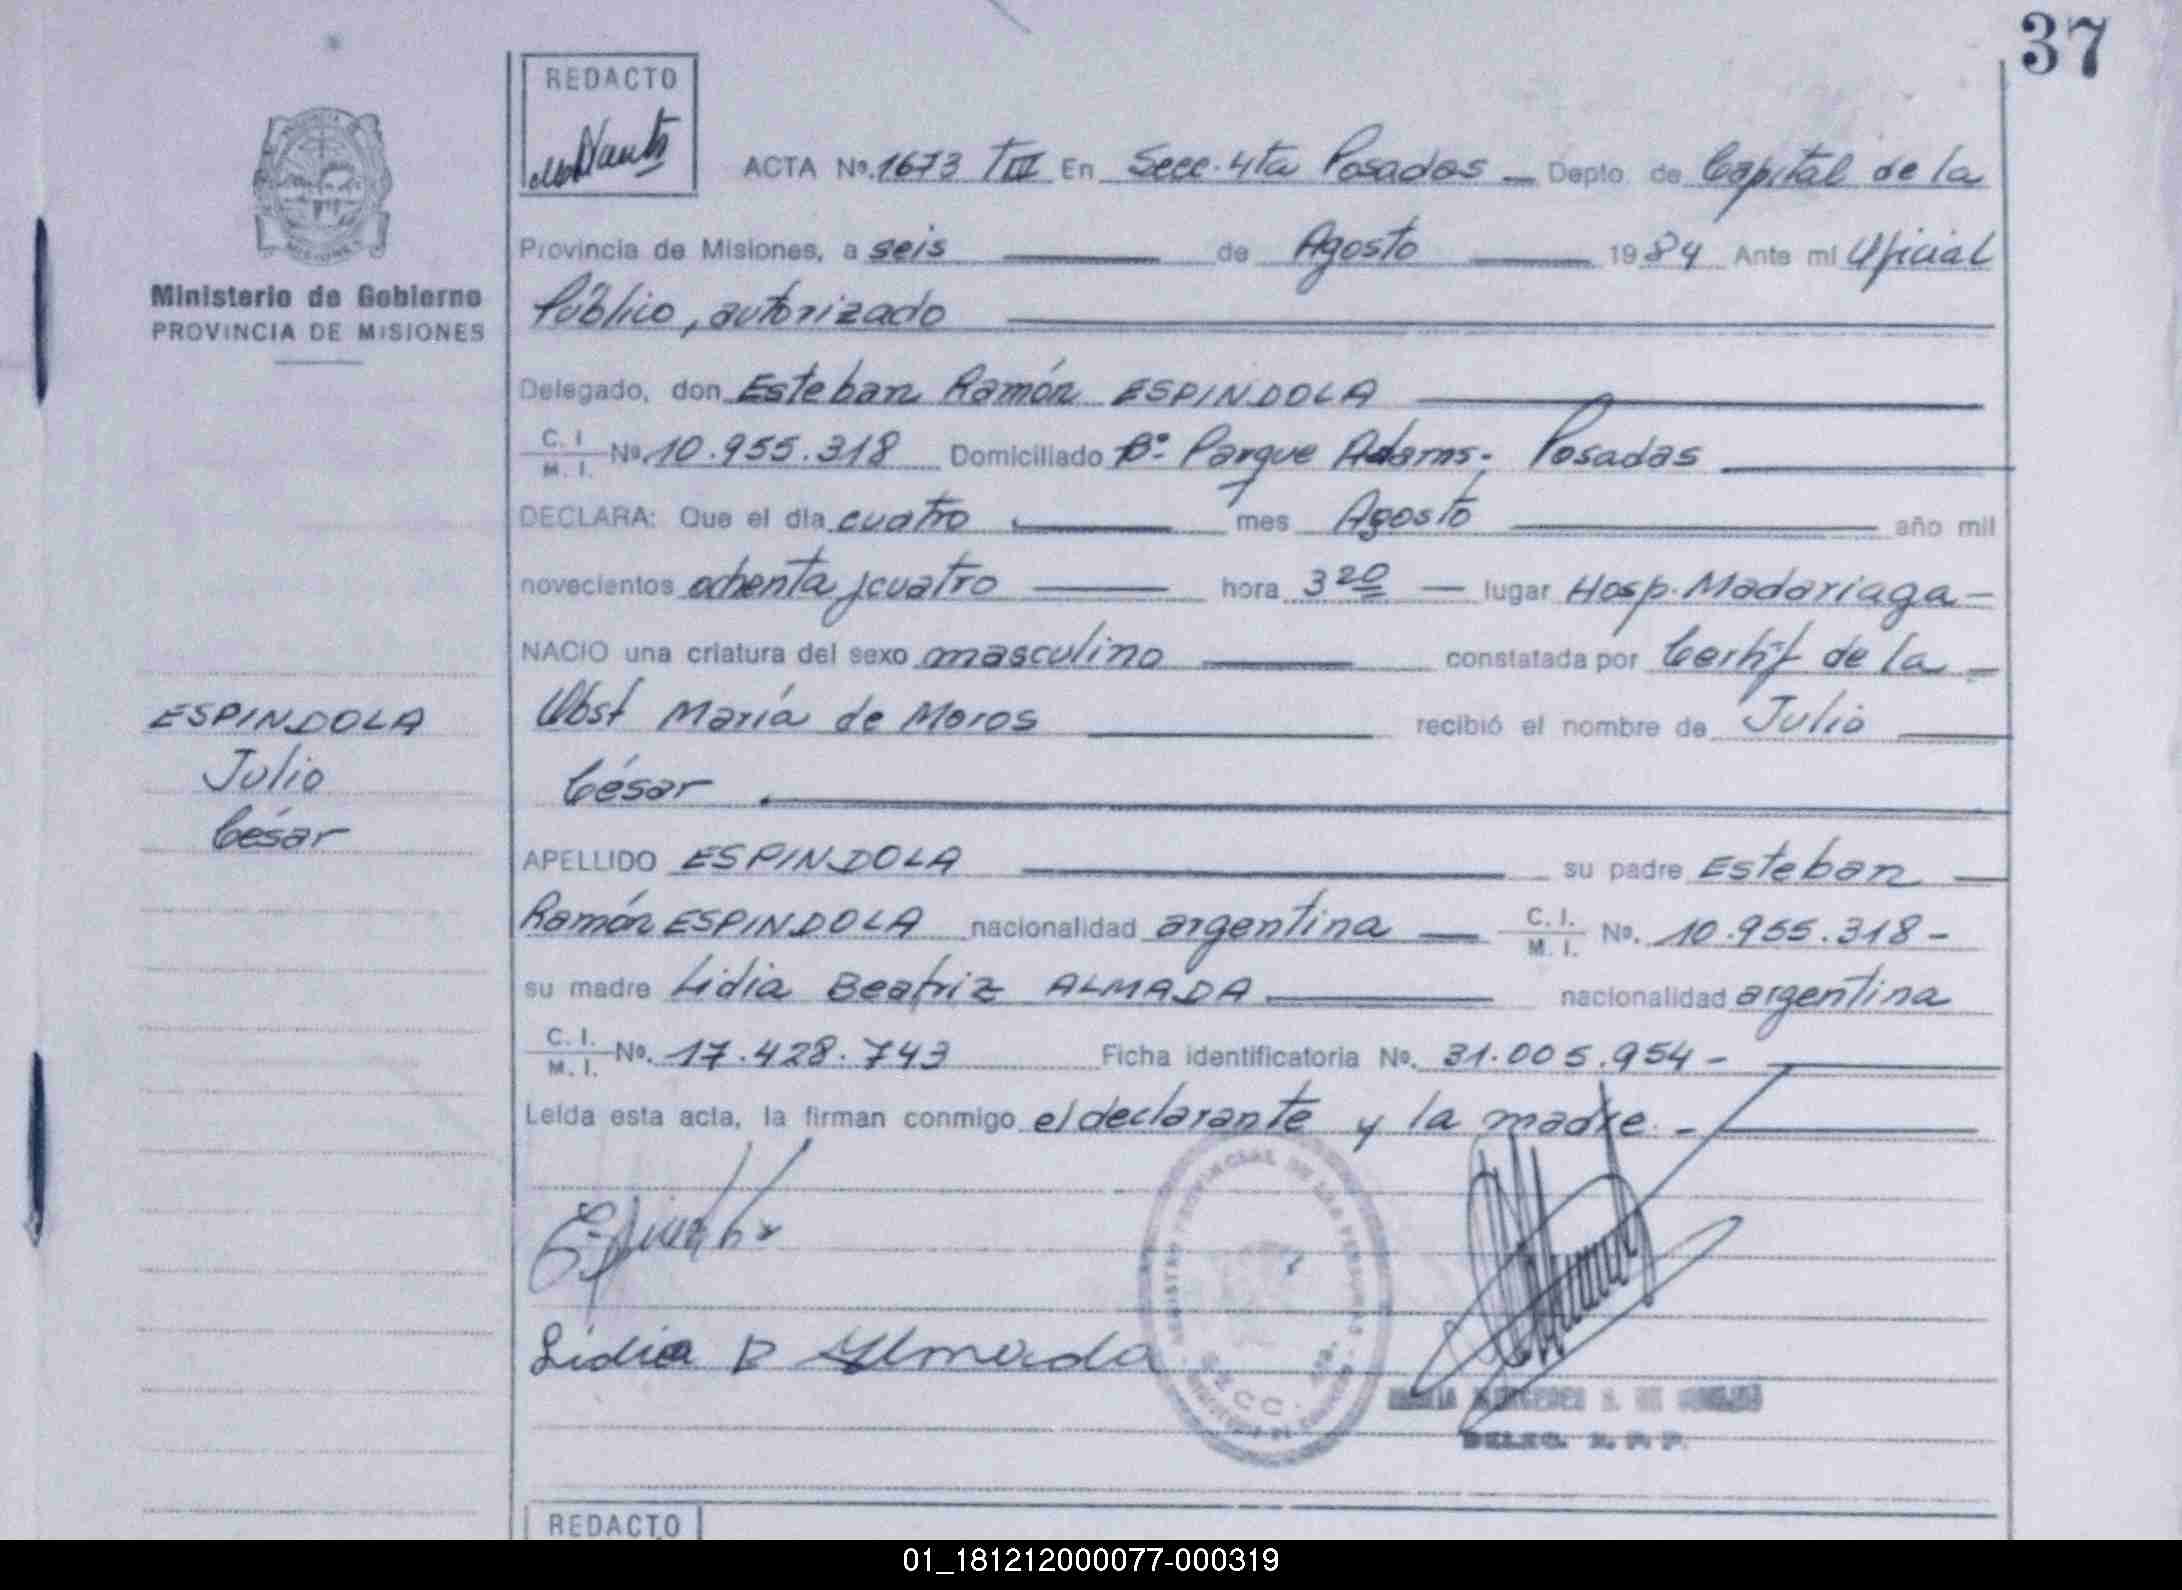 37
REDACTO
ACTA Nº. 1673 TIII En Secc. 4ta Posadas Depto. de Capital de la
Provincia de Misiones, a seis de Agosto 1984 Ante mí Oficial
Público, autorizado
Ministerio de Gobierno
PROVINCIA DE MISIONES
Delegado, don Esteban Ramón ESPINDOLA
C. I. / M. I. Nº. 10.955.318 Domiciliado Bº. Parque Adams. Posadas
DECLARA: Que el día cuatro mes Agosto año mil
novecientos ochenta y cuatro hora 3 20 lugar Hosp. Madariaga
NACIO una criatura del sexo masculino constatada por Certif de la
Obst María de Moros recibió el nombre de Julio
César
ESPINDOLA
Julio
César
APELLIDO ESPINDOLA su padre Esteban
Ramón ESPINDOLA nacionalidad argentina C. I. / M. I. Nº. 10.955.318-
su madre Lidia Beatriz ALMADA nacionalidad argentina
C. I. / M. I. Nº. 17.428.743 Ficha identificatoria Nº. 31.005.954-
Leída esta acta, la firman conmigo el declarante y la madre.-
Lidia B Almada
REGISTRO PROVINCIAL DE LAS PERSONAS
SECC. 4ta.
MARIA MERCEDES S. DE
DELEG. R. P. P.
REDACTO
01_181212000077-000319